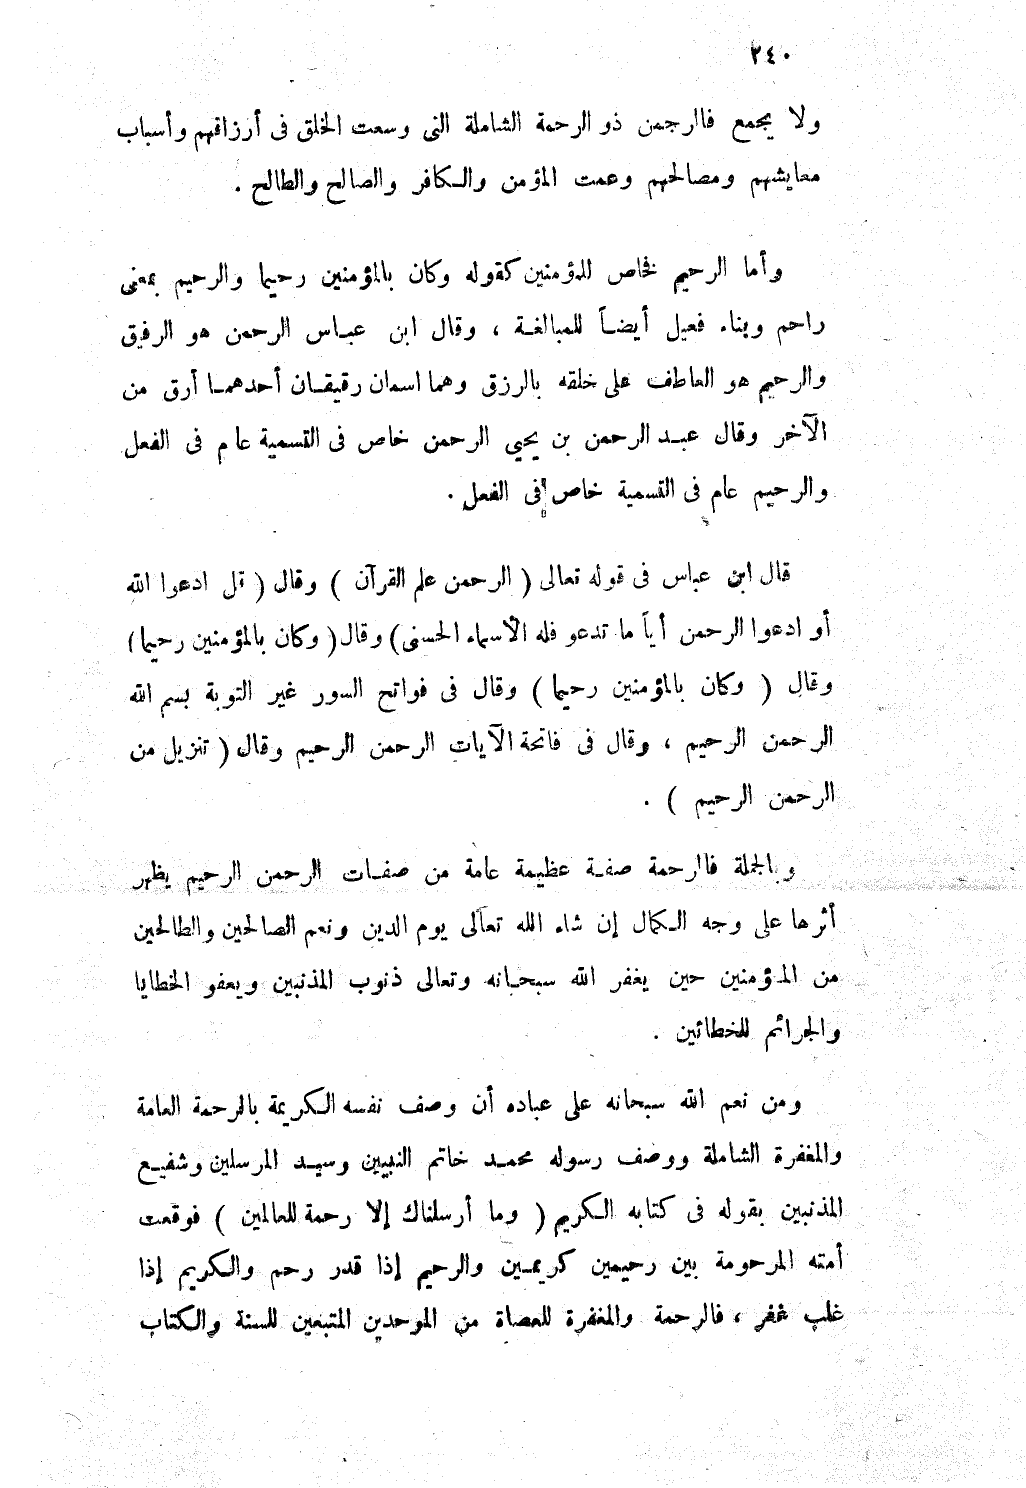 ٢٤٠
ولا يجمع فالرحمن ذو الرحمة الشاملة التى وسعت الخلق فى أرزاقهم وأسباب
معايشهم ومصالحهم وعمت المؤمن والكافر والصالح والطالح .
وأما الرحيم فخاص للمؤمنين كقوله وكان بالمؤمنين رحيما والرحيم بمعنى
راحم وبناء فعيل أيضاً للمبالغة ، وقال ابن عباس الرحمن هو الرفيق
والرحيم هو العاطف على خلقه بالرزق وهما اسمان رقيقان أحدهما أرق من
الآخر وقال عبد الرحمن بن يحيى الرحمن خاص فى التسمية عام فى الفعل
والرحيم عام فى التسمية خاص فى الفعل .
قال ابن عباس فى قوله تعالى ( الرحمن علم القرآن ) وقال ( قل ادعوا الله
أو ادعوا الرحمن أياً ما تدعو فله الأسماء الحسنى ) وقال ( وكان بالمؤمنين رحيما )
وقال ( وكان بالمؤمنين رحيما ) وقال فى فواتح السور غير التوبة بسم الله
الرحمن الرحيم ، وقال فى فاتحة الآيات الرحمن الرحيم وقال ( تنزيل من
الرحمن الرحيم ) .
وبالجملة فالرحمة صفة عظيمة عامة من صفات الرحمن الرحيم يظهر
أثرها على وجه الكمال إن شاء الله تعالى يوم الدين ونعم الصالحين والطالحين
من المؤمنين حين يغفر الله سبحانه وتعالى ذنوب المذنبين ويعفو الخطايا
والجرائم للخطائين .
ومن نعم الله سبحانه على عباده أن وصف نفسه الكريمة بالرحمة العامة
والمغفرة الشاملة ووصف رسوله محمد خاتم النبيين وسيد المرسلين وشفيع
المذنبين بقوله فى كتابه الكريم ( وما أرسلناك إلا رحمة للعالمين ) فوقعت
أمته المرحومة بين رحيمين كريمين والرحيم إذا قدر رحم والكريم إذا
غلب غفر ، فالرحمة والمغفرة للعصاة من الموحدين المتبعين للسنة والكتاب